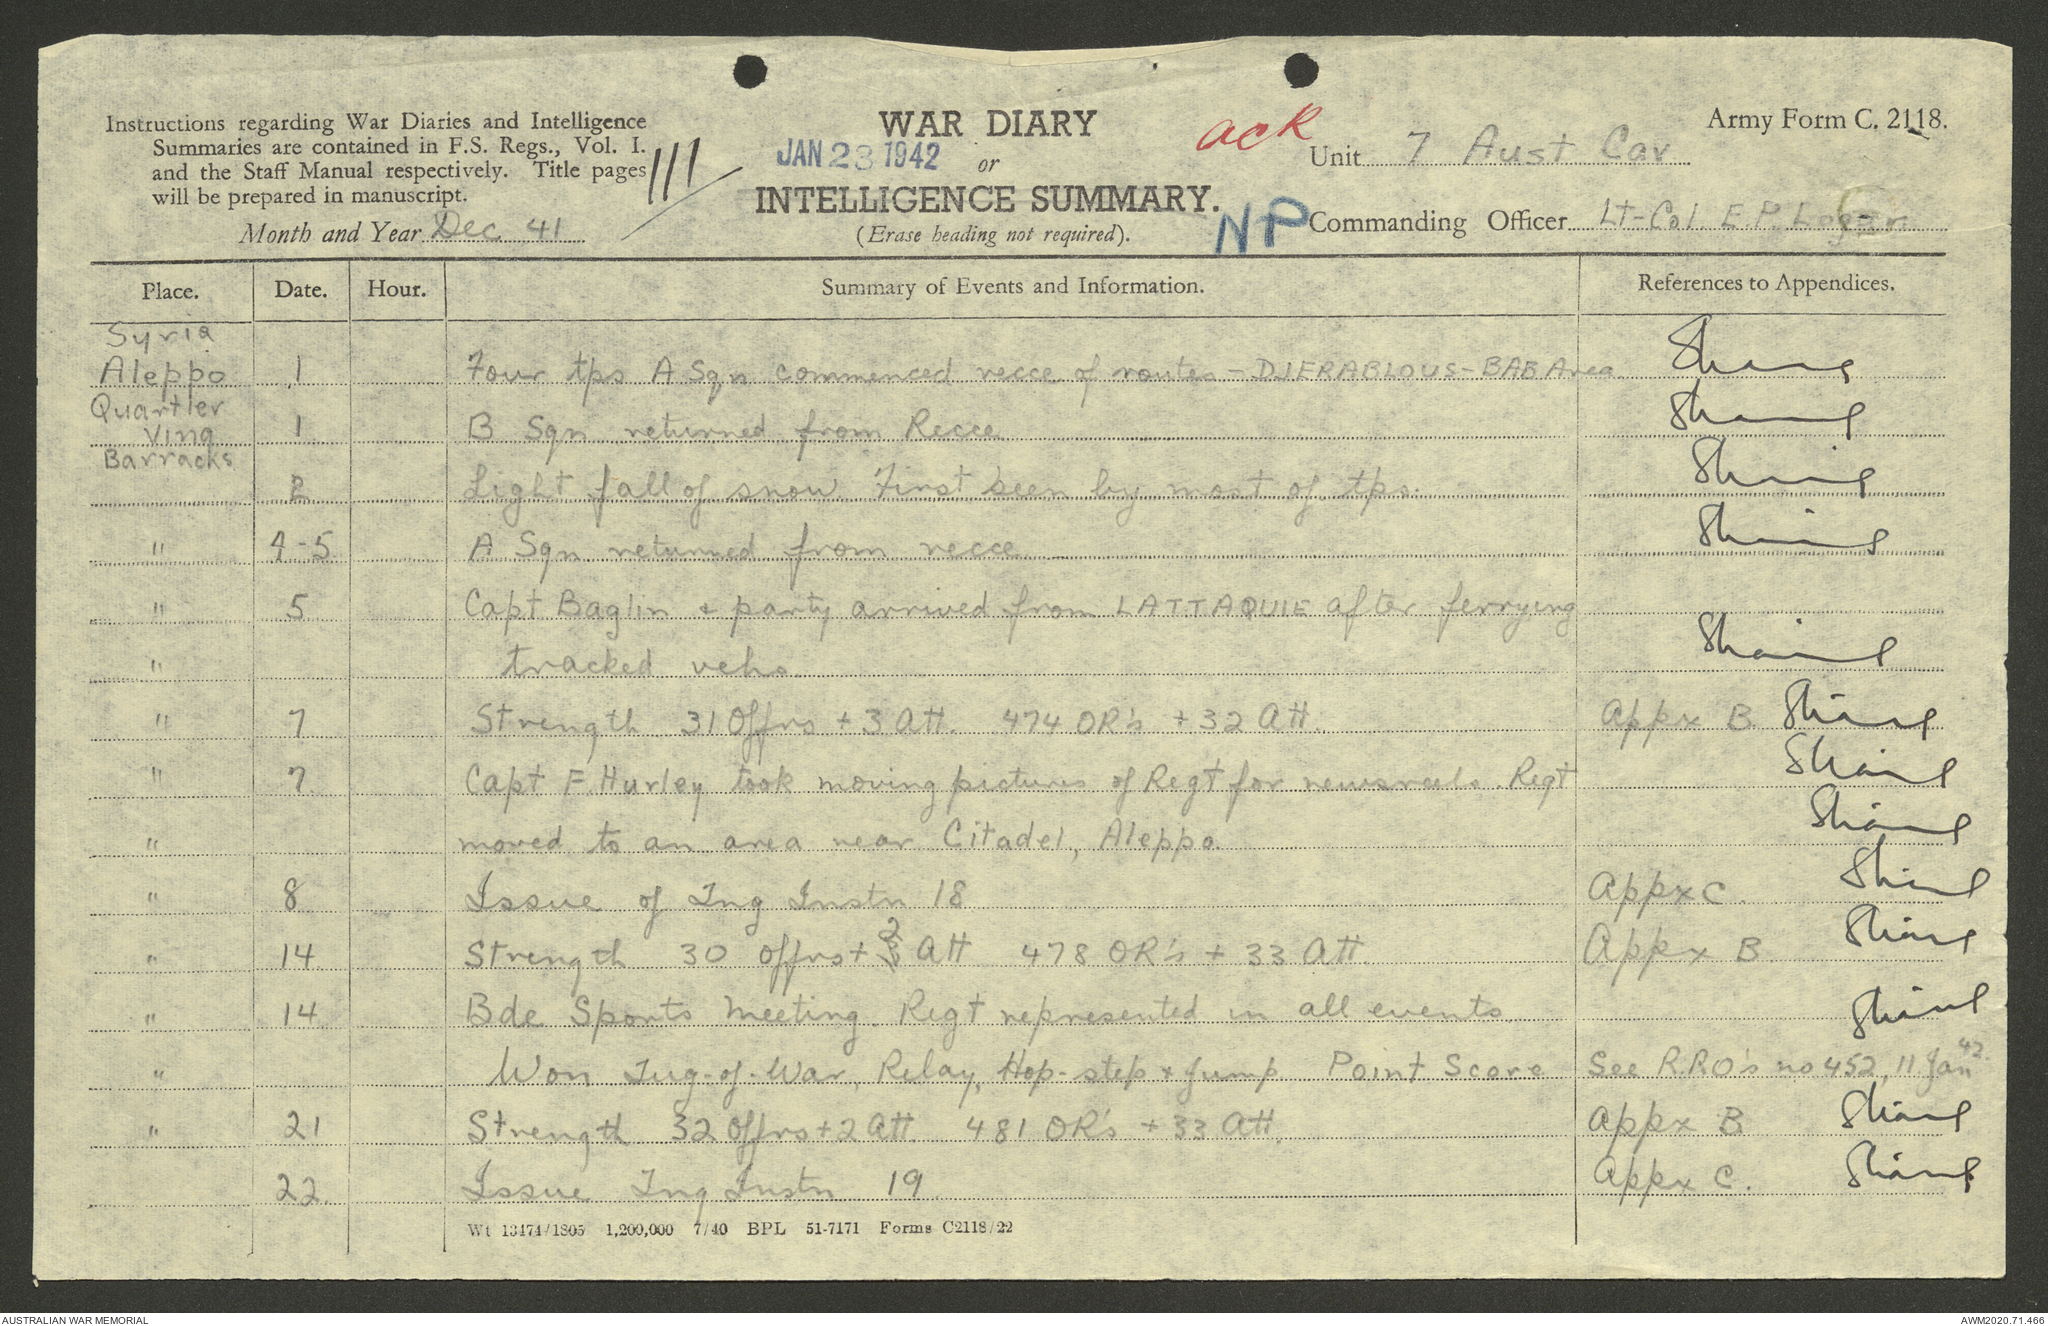 Instructions regarding War Diaries and Intelligence
Summaries are contained in F.S. Regs., Vol. I.
and the Staff Manual respectively. Title pages
will be prepared in manuscript.
Month and Year Dec 41
111
WAR DIARY
JAN 23 1942
or
INTELLIGENCE SUMMARY.
(Erase heading not required).
ack
NP
Army Form C. 2118.
Unit 7 Aust Cav
Commanding Officer Lt-Col. E.P. Logan
Place. Date. Hour. Summary of Events and Information. References to Appendices.
Syria
Aleppo 1 Four tps A Sqn commenced recce of routes - DJERABLOUS - BAB Area
Quartier
Ving 1 B Sqn returned from Recce
Barracks
2 Light fall of snow. First seen by most of tps.
" 4-5 A Sqn returned from recce
" 5 Capt Baglin + party arrived from LATTAQUIE after ferrying
" tracked vehs.
" 7 Strength 31 Offrs + 3 Att. 474 OR's + 32 Att. Appx B
" 7 Capt F. Hurley took moving pictures of Regt for newsreels. Regt
" moved to an area near Citadel, Aleppo.
" 8 Issue of Tng Instn 18 Appx C.
" 14 Strength 30 offrs + 2 Att 478 OR's + 33 Att. Appx B
" 14 Bde Sports Meeting. Regt represented in all events.
" Won Tug-of-War, Relay, Hop-step + jump. Point Score See R.R.O's no 452, 11 Jan 42.
" 21 Strength 32 Offrs + 2 Att 481 OR's + 33 Att. Appx B
22 Issue Tng Instn 19 Appx C.
Wt 13474/1805 1,200,000 7/40 BPL 51-7171 Forms C2118/22
AUSTRALIAN WAR MEMORIAL
AWM2020.71.466